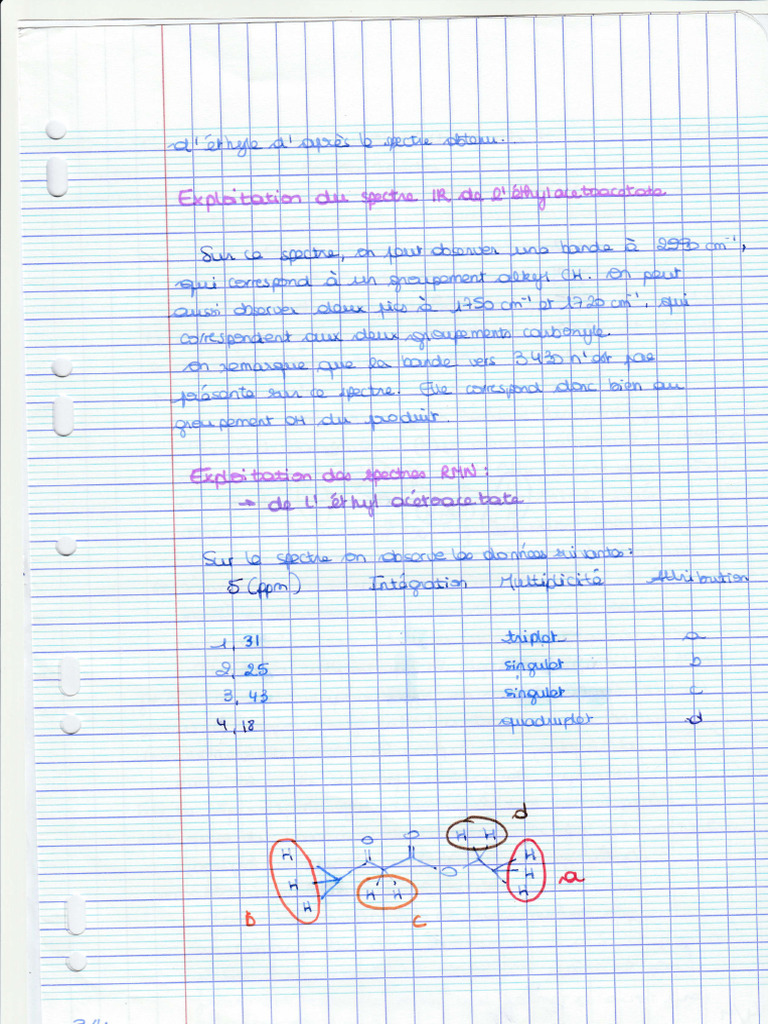 d'éthyle d'après le spectre obtenu.
Exploitation du spectre IR de l'Ethylacetoacetate
Sur ce spectre, on peut observer une bande à 2990 cm⁻¹,
qui correspond à un groupement alkyl CH. On peut
aussi observer deux pics à 1750 cm⁻¹ et 1720 cm⁻¹, qui
correspondent aux deux groupements carbonyle.
On remarque que la bande vers 3430 n'est pas
présente sur ce spectre. Elle correspond donc bien au
groupement OH du produit.
Exploitation des spectres RMN :
→ de l'Ethyl acétoacetate
Sur le spectre on observe les données suivantes :
δ (ppm) Intégration Multiplicité Attribution
1,31 triplet a
2,25 singulet b
3,43 singulet c
4,18 quadruplet d
d
O O H H
H H
H H
H O H
H H H a
b c